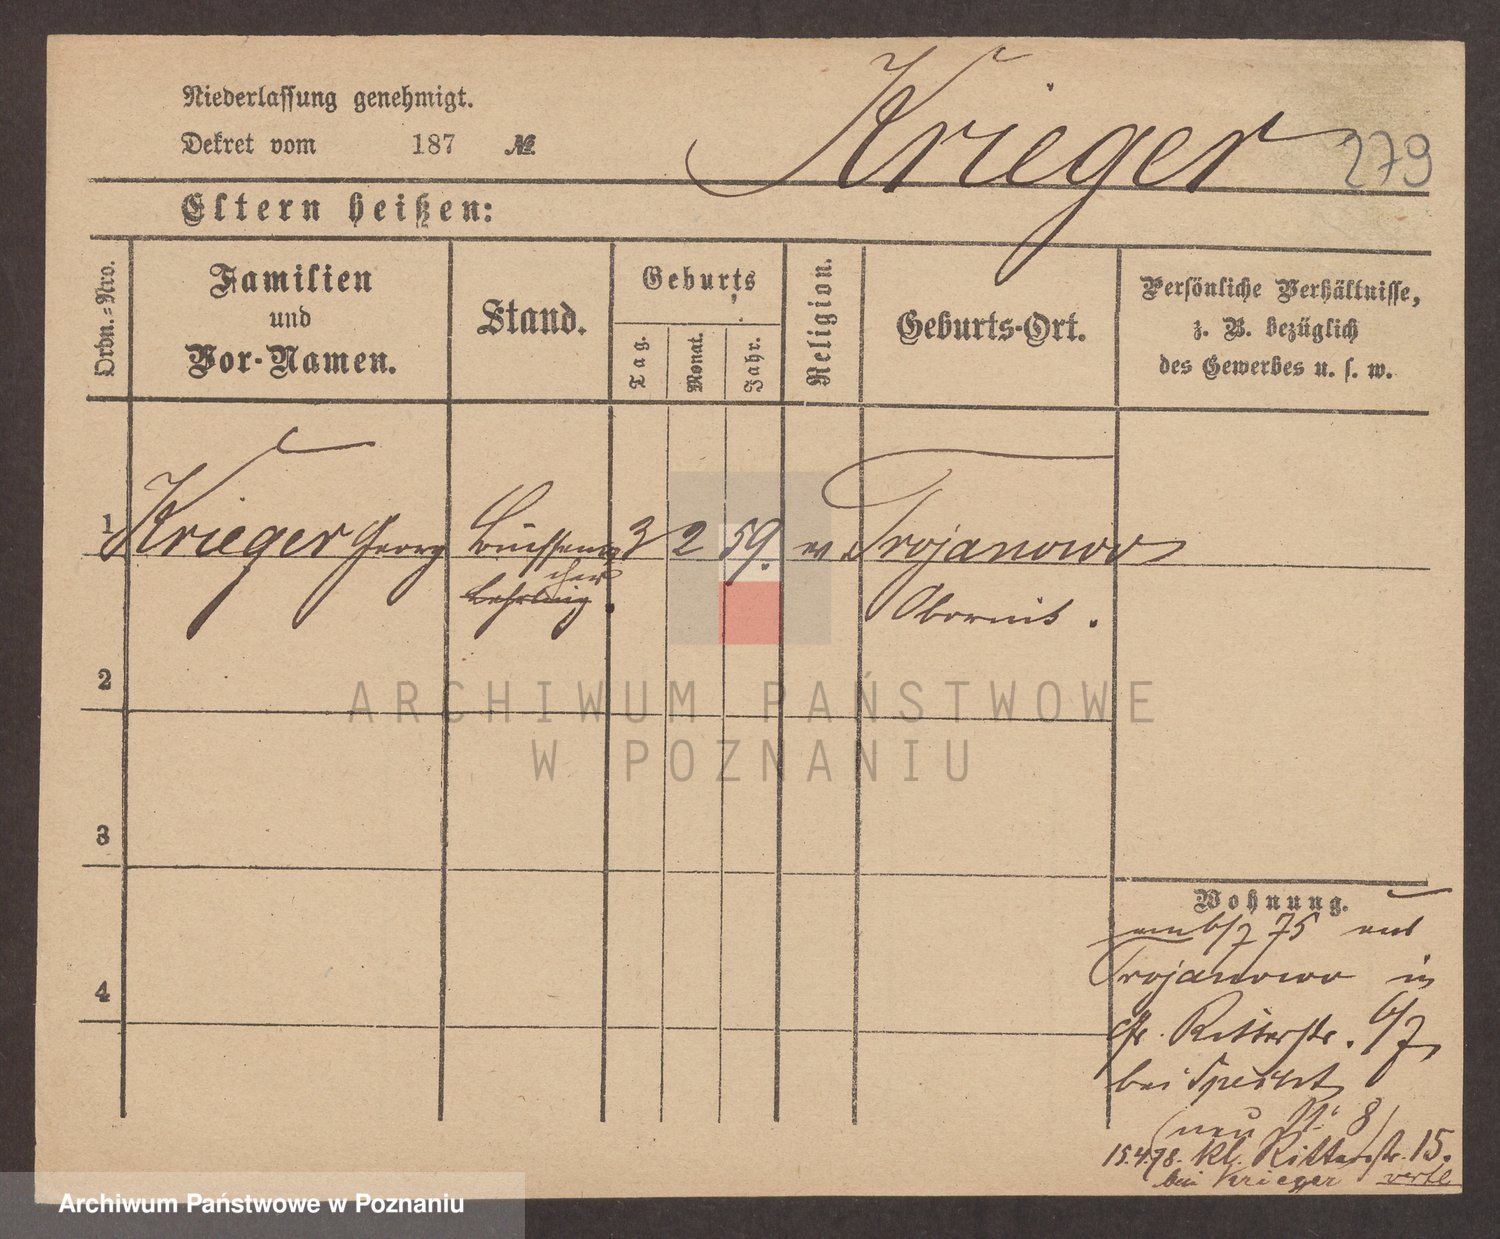 Niederlassung genehmigt.
Krieger
Dekret vom 187 №
279
Eltern heißen:
Ordn.-Nro.
Familien
und
Vor-Namen.
Stand.
Geburts
Tag.
Monat.
Jahr.
Religion.
Geburts-Ort.
Persönliche Verhältnisse,
z. B. bezüglich
des Gewerbes u. s. w.
1 Krieger Georg Büchsenma 3 2 59. ev. Trojanowo
cher
Lehrling.
Obornik.
2
ARCHIWUM PAŃSTWOWE
W POZNANIU
3
Wohnung.
6/7 75 aus
4
Trojanowo in
gr. Ritterstr. 6/7
bei Specht
(neu № 8)
15.4.78. kl. Ritterstr. 15.
bei Krieger
Archiwum Państwowe w Poznaniu